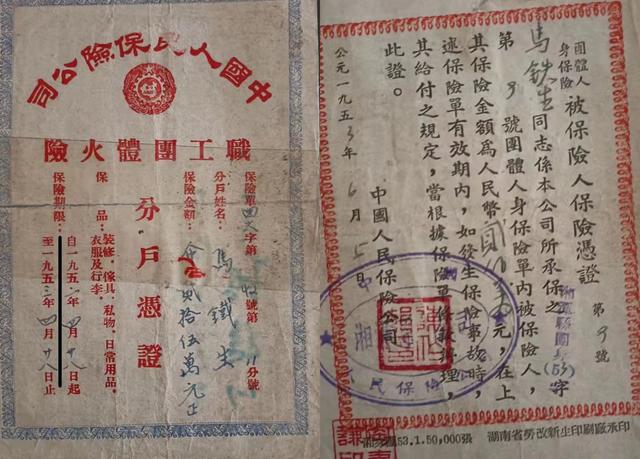 中國人民保險公司
職工團體火險
分戶憑證
保險單
字第
號第
分號
分戶姓名：馬鐵生
保險金額：
貳拾伍萬元正
保品：裝修．傢具．私物．日常用品．
衣服及行李．
保險期限：自一九五二年四月廿八日起
至一九五三年四月廿八日止
團體人身保險被保險人保險憑證
第9號
馬鉄生同志係本公司所承保之
(53)字
第9號團體人身保險單內被保險人，
其保險金額為人民幣
元，在上
述保險單有效期內，如發生保險事故時，
其給付之規定，當根據保險單條款辦理，
此證。
中國人民保險公司
公元一九五3年6月5日
53.1.50,000張
湖南省勞改新生印刷廠承印